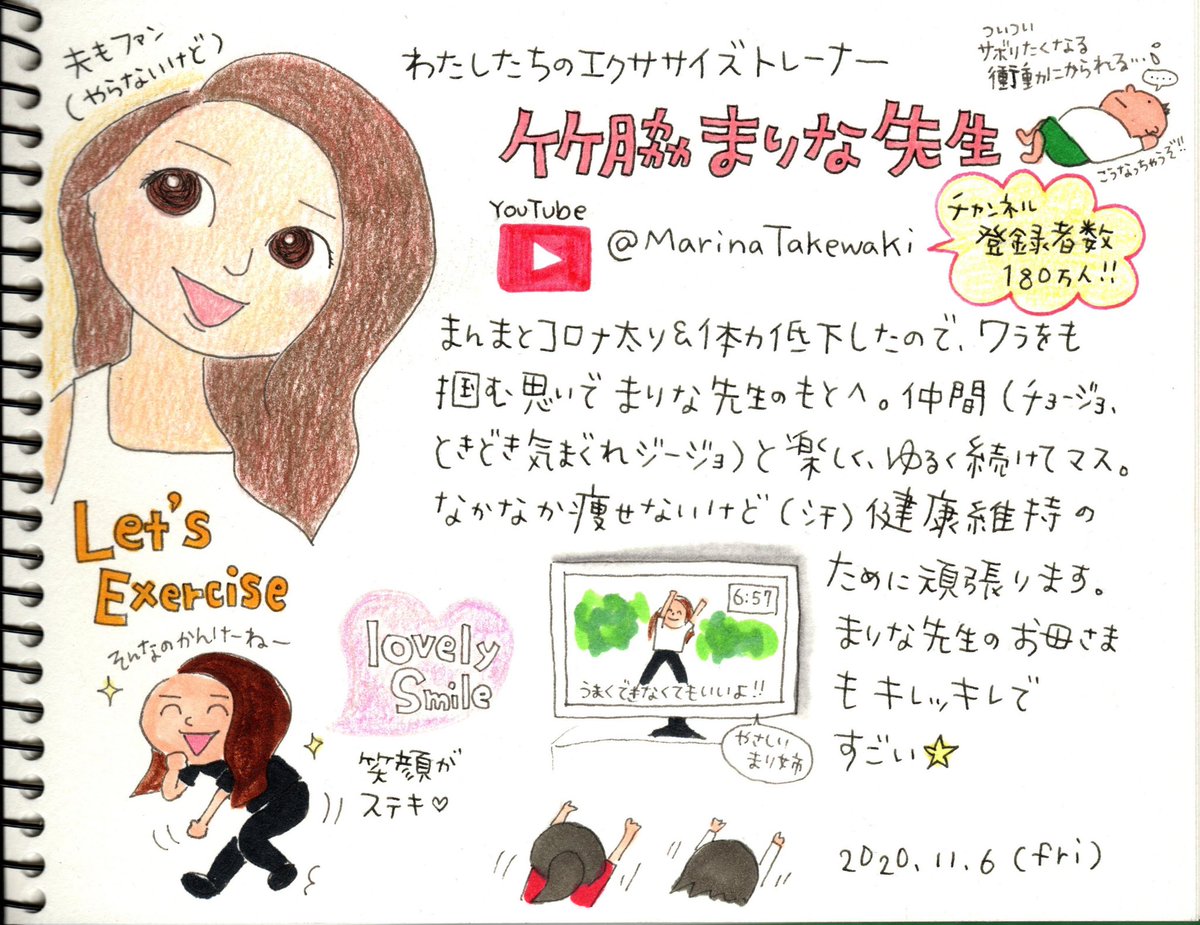 夫もファン
(やらないけど)
わたしたちのエクササイズトレーナー
竹脇まりな先生
ついつい
サボりたくなる
衝動にかられる…
こうなっちゃうぞ!!
YouTube
@MarinaTakewaki
チャンネル
登録者数
180万人!!
まんまとコロナ太り&体力低下したので、ワラをも
掴む思いでまりな先生のもとへ。仲間(チョージョ、
ときどき気まぐれジージョ)と楽しく、ゆるく続けてマス。
なかなか痩せないけど(汗)健康維持の
ために頑張ります。
まりな先生のお母さま
もキレッキレで
すごい☆
Let's
Exercise
そんなのかんけーねー
lovely
Smile
笑顔が
ステキ♡
6:57
うまくできなくてもいいよ!!
やさしい
まり姉
2020.11.6(fri)